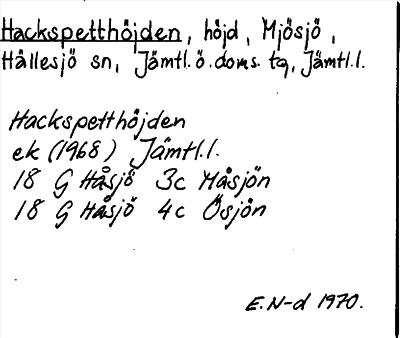 Hackspetthöjden, höjd, Mjösjö,
Hällesjö sn, Jämtl.ö.doms. tg, Jämtl.l.
Hackspetthöjden
ek (1968) Jämtl.l.
18 G Håsjö 3c Måsjön
18 G Håsjö 4c Ösjön
E.N-d 1970.